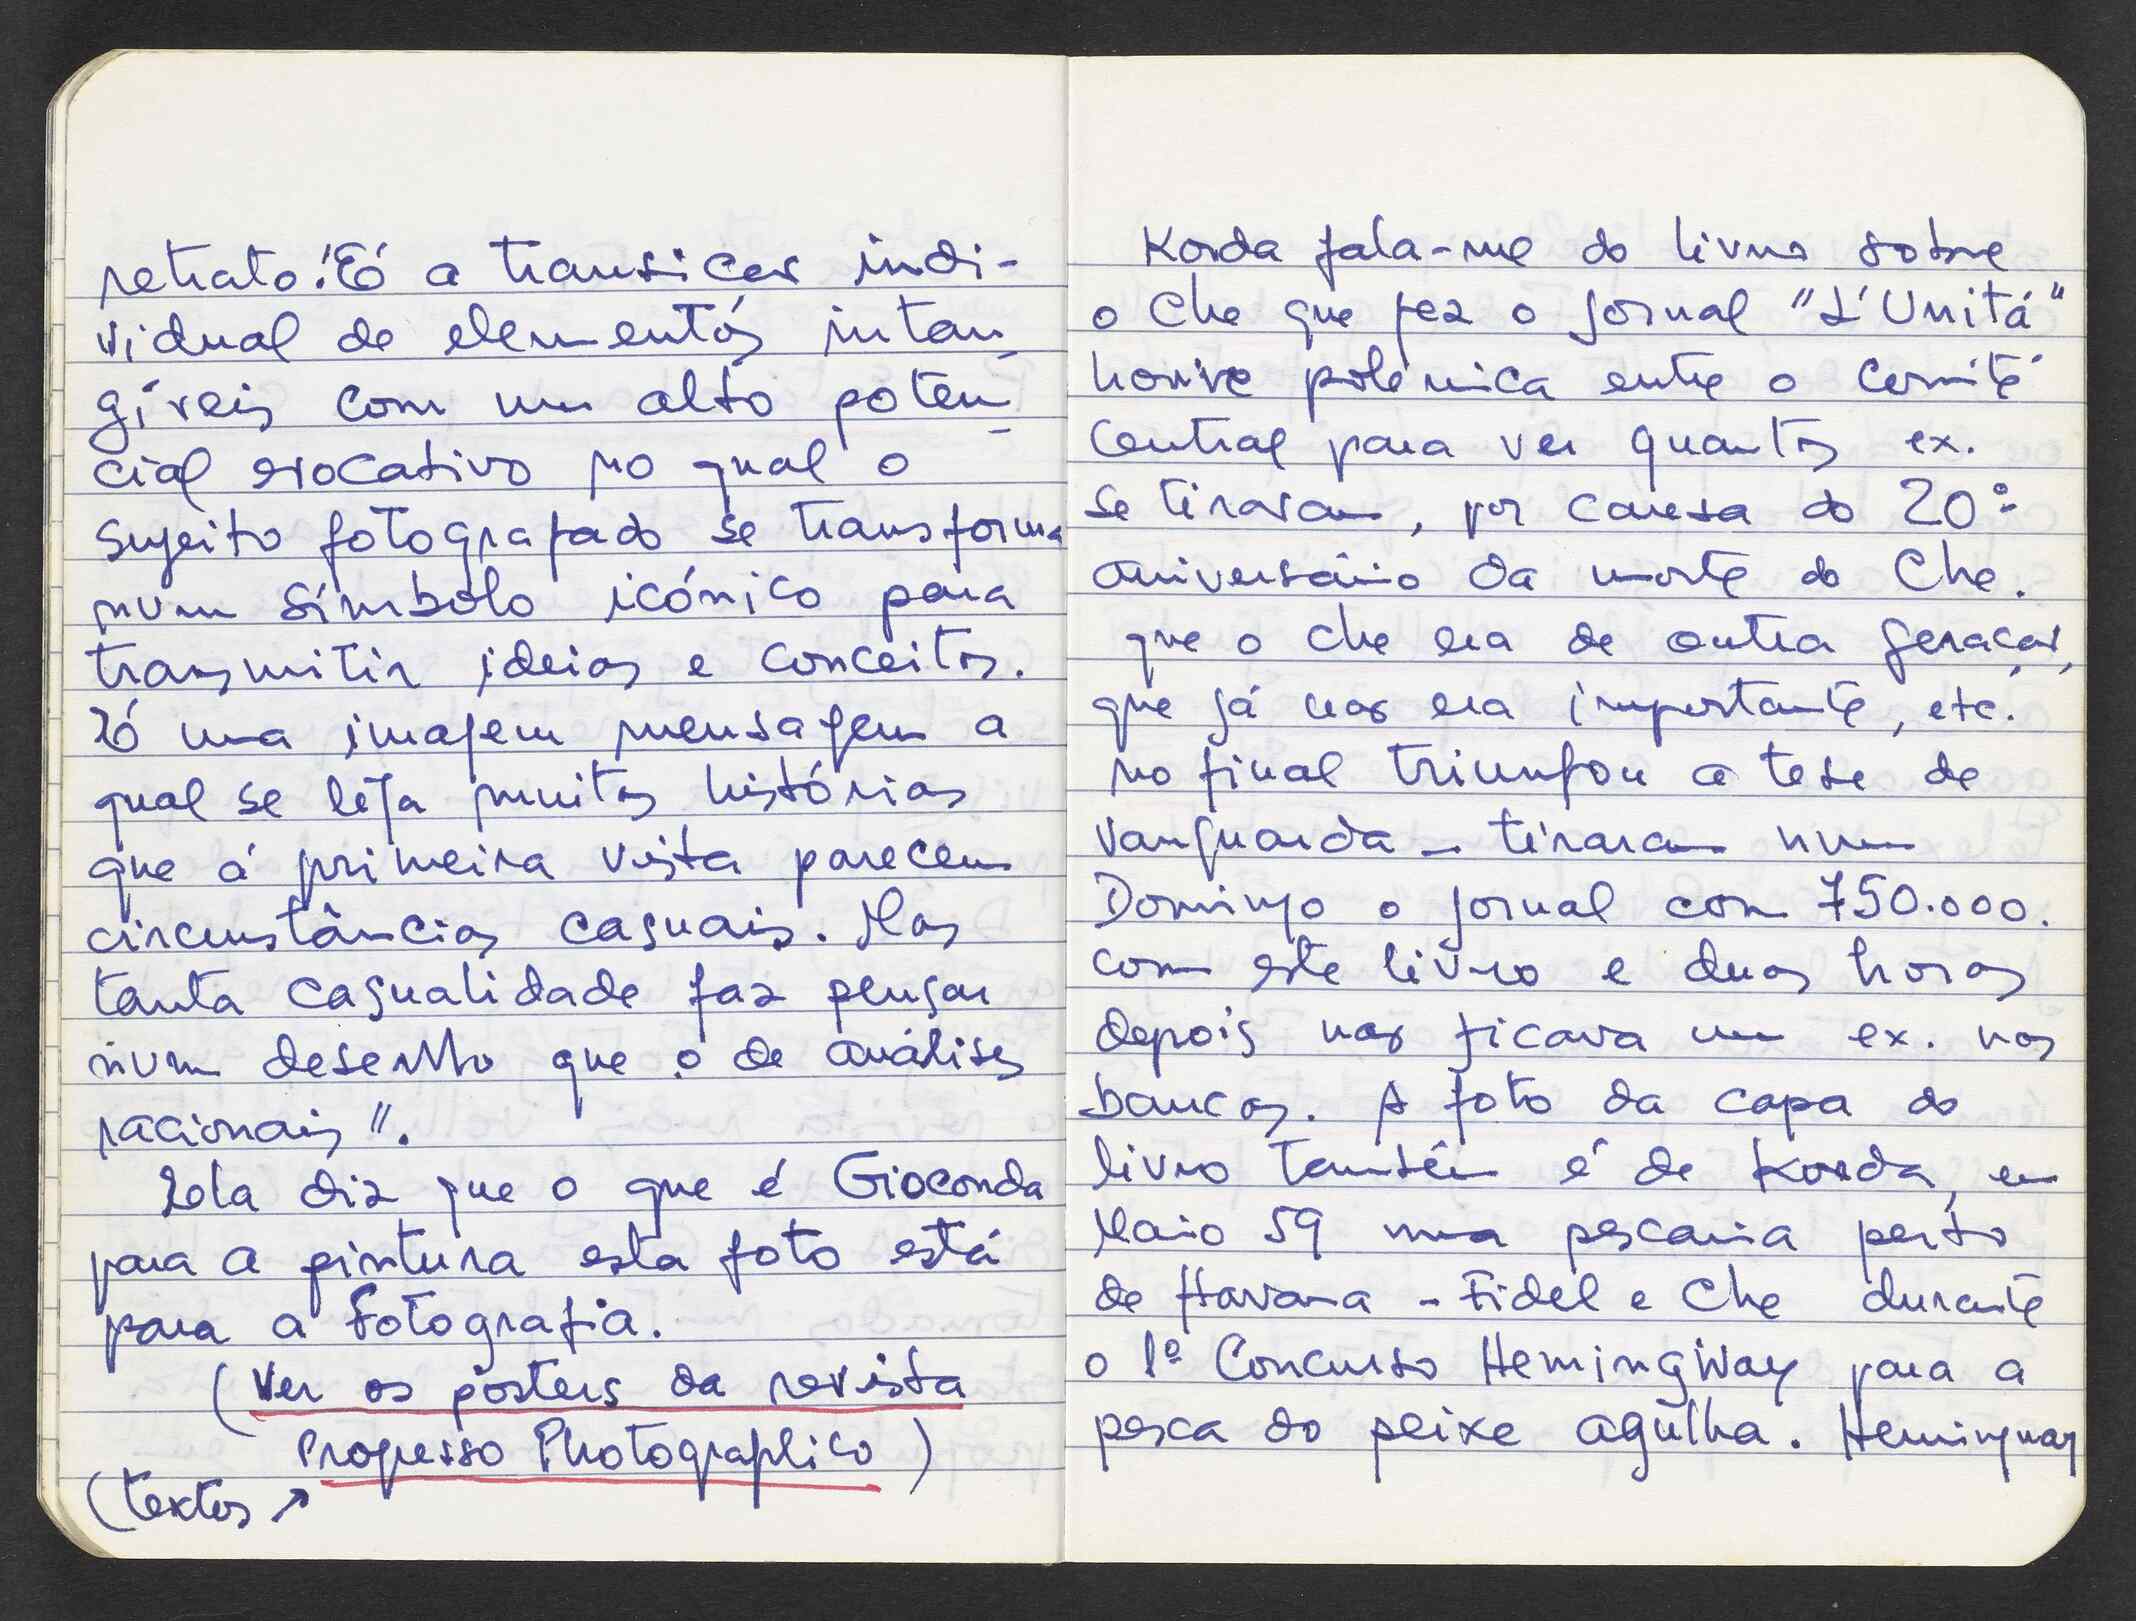 retrato: "É a transicão indi-
vidual de elementos intan-
gíveis com um alto poten-
cial evocativo no qual o
sujeito fotografado se transforma
num símbolo icónico para
transmitir ideias e conceitos.
É uma imagem mensagem a
qual se liga muitas histórias
que á primeira vista parecem
circunstâncias casuais. Mas
tanta casualidade faz pensar
num desenho que o de análises
racionais".
Ela diz que o que é Gioconda
para a pintura esta foto está
para a fotografia.
(Ver os posters da revista
Progresso Photographico)
(textos ↗
Korda fala-me do livro sobre
o Che que fez o jornal "L'Unitá"
houve polémica entre o comité
Central para ver quantos ex.
se tiravam, por causa do 20º
aniversário da morte do Che.
que o che era de outra geracão,
que já não era importante, etc.
no final triunfou a tese de
vanguarda - tiraram num
Domingo o jornal com 750.000.
com este livro e duas horas
depois não ficava um ex. nos
bancos. A foto da capa do
livro também é de Korda, em
Maio 59 numa pescaria perto
de Havana - Fidel e Che durante
o 1º Concurso Hemingway para a
pesca do peixe agulha. Hemingway